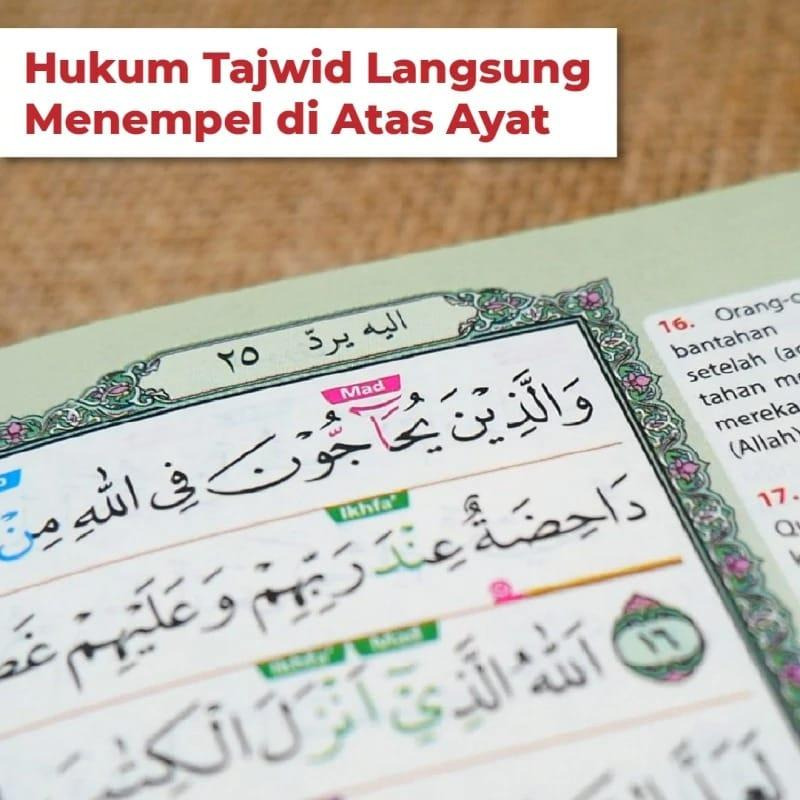 Hukum Tajwid Langsung
Menempel di Atas Ayat
اليه يردّ ٢٥
Mad
وَالَّذِيْنَ يُحَاۤجُّوْنَ فِى اللّٰهِ مِنْ
Ikhfa'
دَاحِضَةٌ عِنْدَ رَبِّهِمْ وَعَلَيْهِمْ
١٦
Mad
Ikhfa'
اَللّٰهُ الَّذِيْٓ اَنْزَلَ الْكِتٰبَ
16. Orang-o
bantahan
setelah (a
tahan me
mereka
(Allah)
17.
Qu